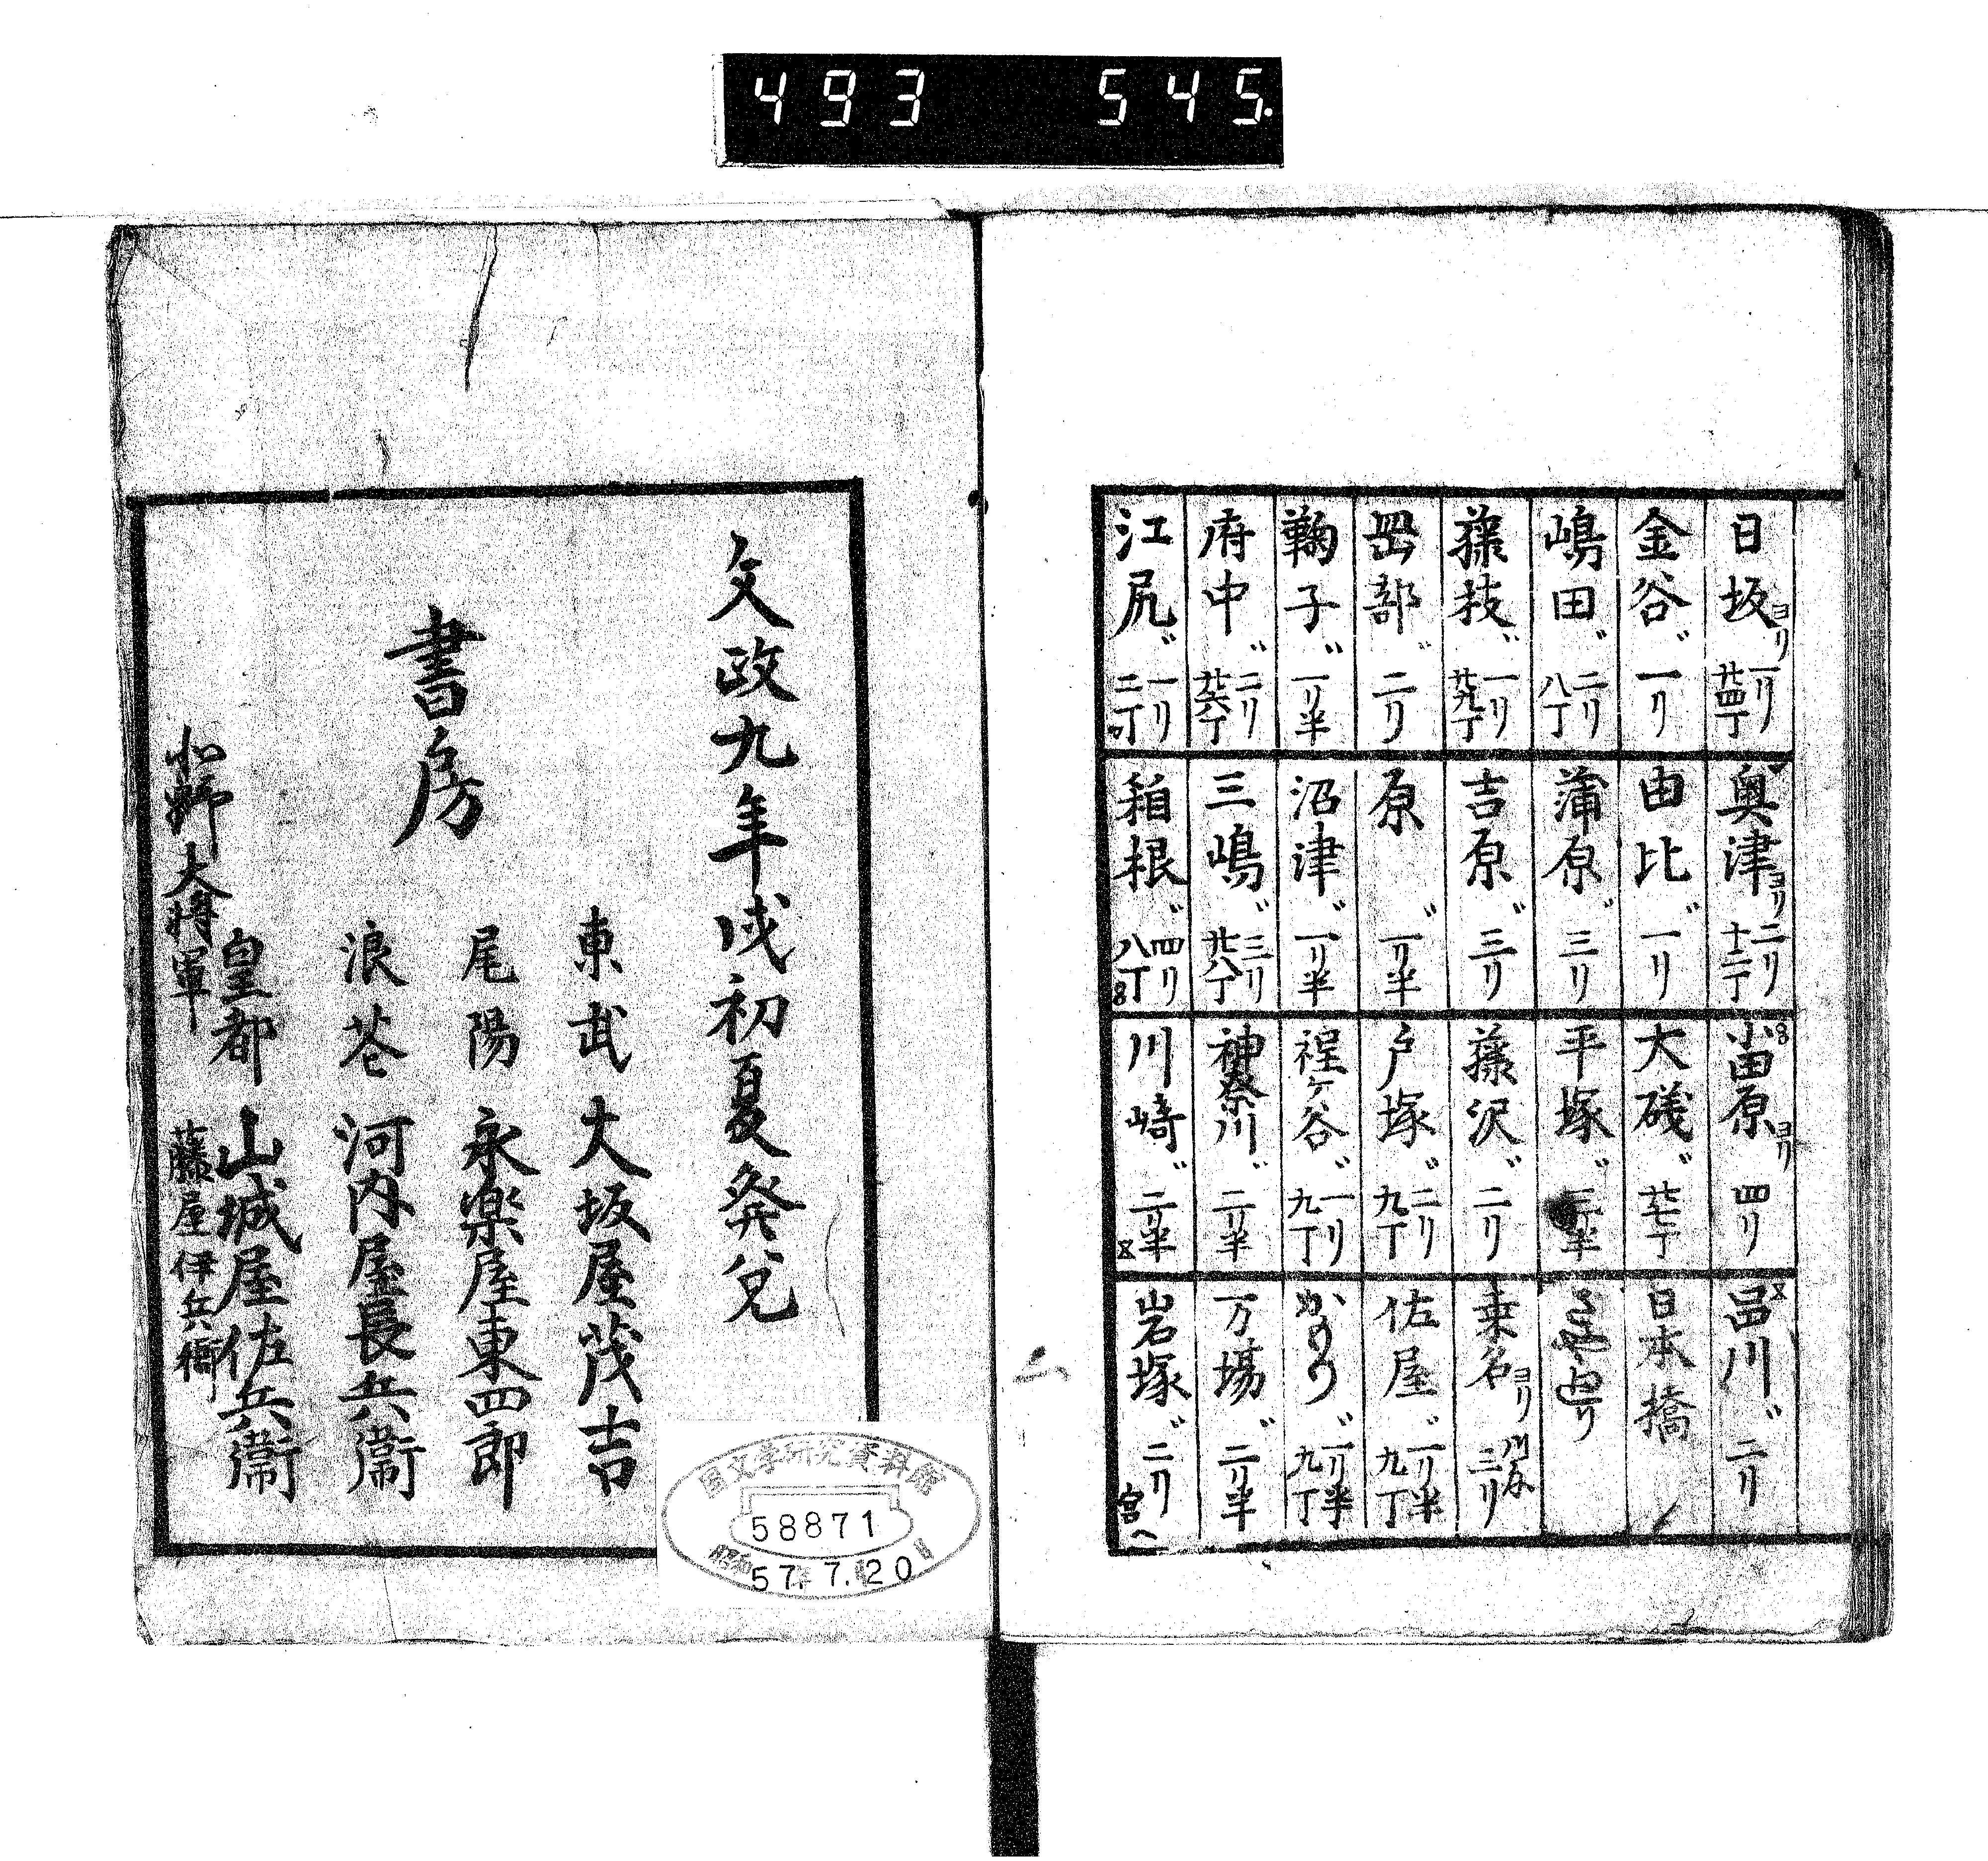 493 545.
日坂ヨリ 一リ廿四丁
金谷〃 一リ
嶋田〃 二リ八丁
藤枝〃 一リ廿九丁
岡部〃 二リ
鞠子〃 一リ半
府中〃 二リ廿六丁
江尻〃 一リ二丁
奥津ヨリ 二リ十二丁
由比〃 一リ
蒲原〃 三リ
吉原〃 三リ
原〃 一リ半
沼津〃 一リ半
三嶋〃 三リ廿八丁
箱根〃 四リ八丁
小田原ヨリ 四リ
大磯〃 廿七丁
平塚〃 三リ半
藤沢〃 二リ
戸塚〃 二リ九丁
程ヶ谷〃 一リ九丁
神奈川〃 二リ半
川崎〃 二リ半
品川〃 二リ
日本橋
さやまわり
桒名ヨリ 川舟三リ
佐屋〃 一リ半九丁
かもり〃 一リ半九丁
万場〃 二リ半
岩塚〃 二リ 宮へ
文政九年戌初夏発兌
書房
東武 大坂屋茂吉
尾陽 永楽屋東四郎
浪花 河内屋長兵衞
皇都 山城屋佐兵衞
大将軍
藤屋伊兵衞
国文学研究資料館
58871
昭和57.7.20